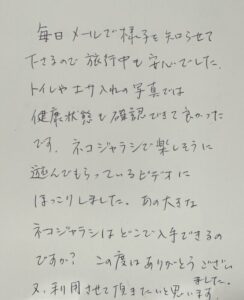 毎日メールで様子を知らせて
下さるので旅行中も安心でした。
トイレやエサ入れの写真では
健康状態も確認できて良かった
です。ネコジャラシで楽しそうに
遊んでもらっているビデオに
ほっこりしました。あの大きな
ネコジャラシはどこで入手できるの
ですか？ この度はありがとうござい
ました。
又、利用させて頂きたいと思います。